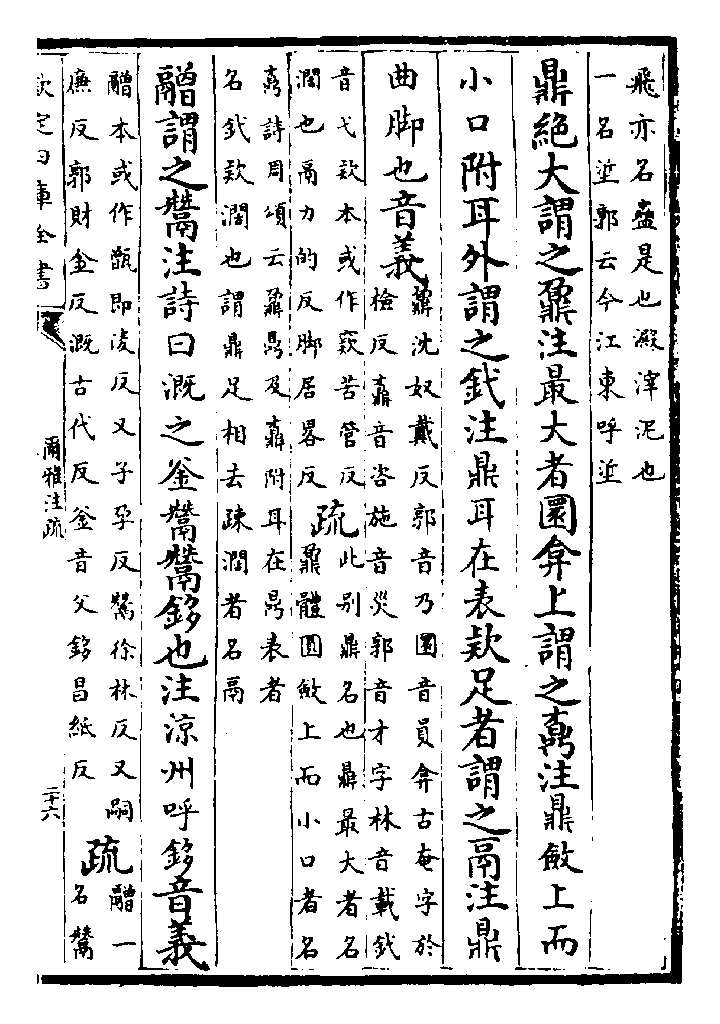 飛亦名𧒽是也澱滓泥也
一名垽郭云今江東呼垽
鼎絶大謂之鼐注最大者圜弇上謂之鼒注鼎斂上而
小口附耳外謂之釴注鼎耳在表欵足者謂之鬲注鼎
曲脚也音義
鼐沈奴戴反郭音乃圜音員弇古奄字於
檢反鼒音咨施音災郭音才字林音載釴
音弋欵本或作窾苦管反
濶也鬲力的反脚居畧反
疏
此别鼎名也鼎最大者名
鼐體圓斂上而小口者名
鼒詩周頌云鼐鼎及鼒附耳在鼎表者
名釴欵濶也謂鼎足相去疎濶者名鬲
䰝謂之鬵注詩曰溉之釜鬵鬵鉹也注涼州呼鉹音義
䰝本或作甑即凌反又子孕反鬵徐林反又嗣
廉反郭財金反溉古代反釜音父鉹昌紙反
疏
䰝一
名鬵
欽定四庫全書
爾雅注疏
二十六